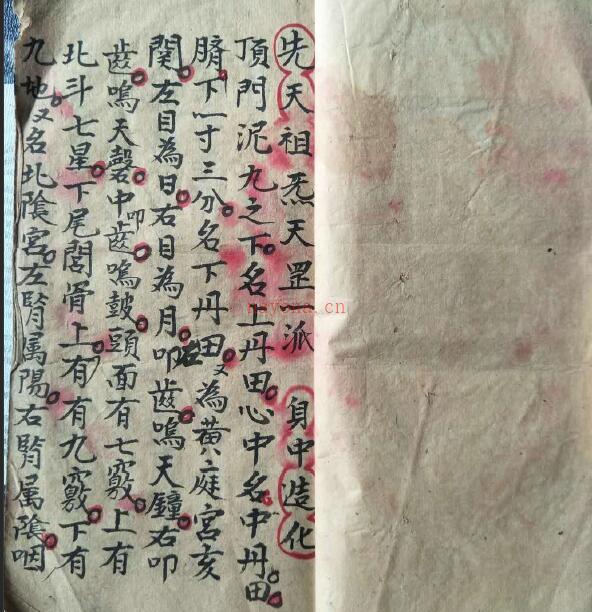 先天祖炁天罡一派 身中造化
頂門泥九之下。名上丹田。心中名中丹田。
臍下一寸三分。名下丹田。又為黃庭宮亥
関。左目為日。右目為月。叩齒鳴天鐘。右叩
齒鳴天磬。中叩齒鳴皷。頭面有七竅。上有
北斗七星。下尾閭骨上有有九竅。下有
九地。又名北陰宮。左腎属陽。右腎属陰。咽